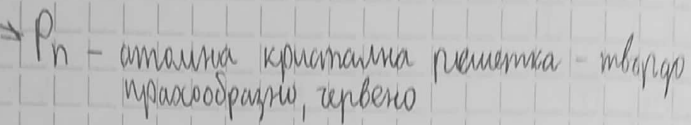 → Pn – атомна кристална решетка – твърдо
прахообразно, червено